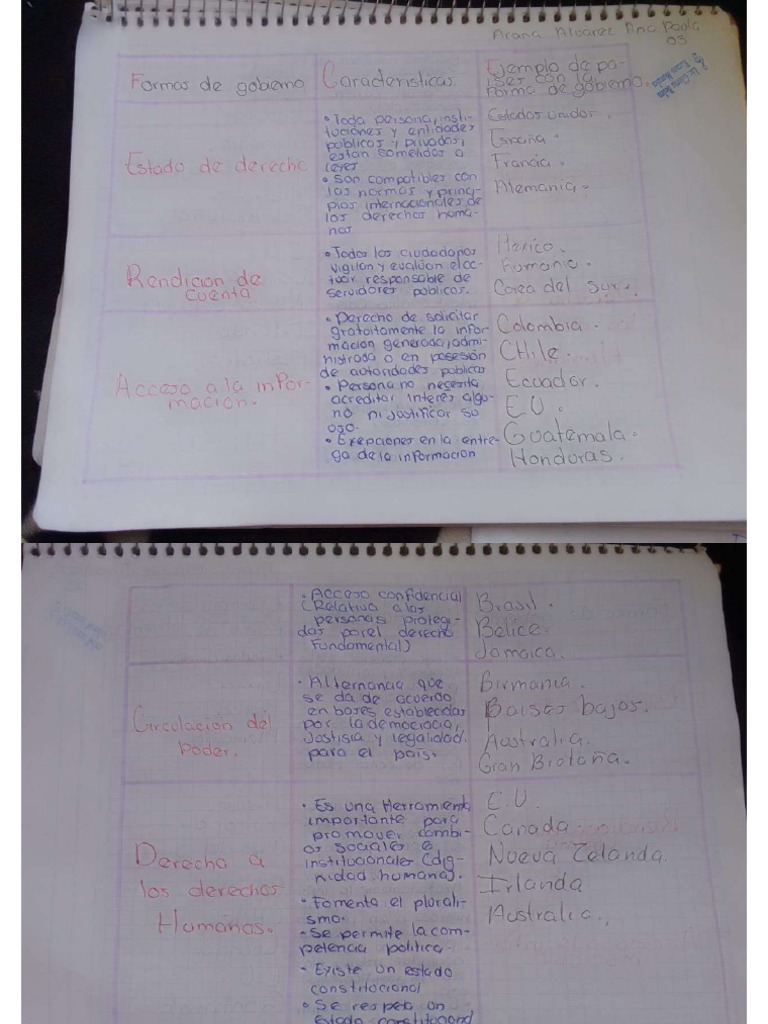 Arana Alvarez Ana Paola
03
Formas de gobierno
Caracteristicas
Ejemplo de pai-
ses con la
forma de gobierno.
Estado de derecho
• Toda persona, insti-
tuciones y entidades
publicos y privados,
estan sometidos a
leyes
• Son compatibles con
los normas y princi-
pios internacionales de
los derechos huma-
nos
Estados Unidos.
España.
Francia.
Alemania.
Rendicion de
cuenta
• Todos los ciudadanos
vigilan y evalúan el ac-
tuar responsable de
servidores publicos.
Mexico.
Rumania.
Corea del sur.
Acceso a la infor-
macion.
• Derecho de solicitar
gratuitamente la infor-
macion generada, admi-
nistrada o en posesión
de autoridades publicas
• Persona no necesita
acreditar interés algu-
no ni justificar su
uso.
• Exepciones en la entre-
ga de la informacion
Colombia.
CHile.
Ecuador.
EU.
Guatemala.
Honduras.
• Acceso confidencial
(Relativa a las
personas protegi-
das por el derecho
fundamental)
Brasil.
Belice.
Jamaica.
Circulación del
poder.
• Alternancia que
se da de acuerdo
en bases establecidas
por la democracia,
Justisia y legalidad.
para el país.
Birmania.
Paises bajos.
Australia.
Gran Bretaña.
Derecho a
los derechos
Humanos.
• Es una Herramienta
importante para
promover cambi-
os sociales e
institucionales (dig-
nidad humana).
• Fomenta el plurali-
smo.
- Se permite la com-
petencia politica.
- Existe un estado
constitucional
• Se respeta un
Estado constitucional
E.U.
Canada.
Nueva Zelanda.
Irlanda
Australia.